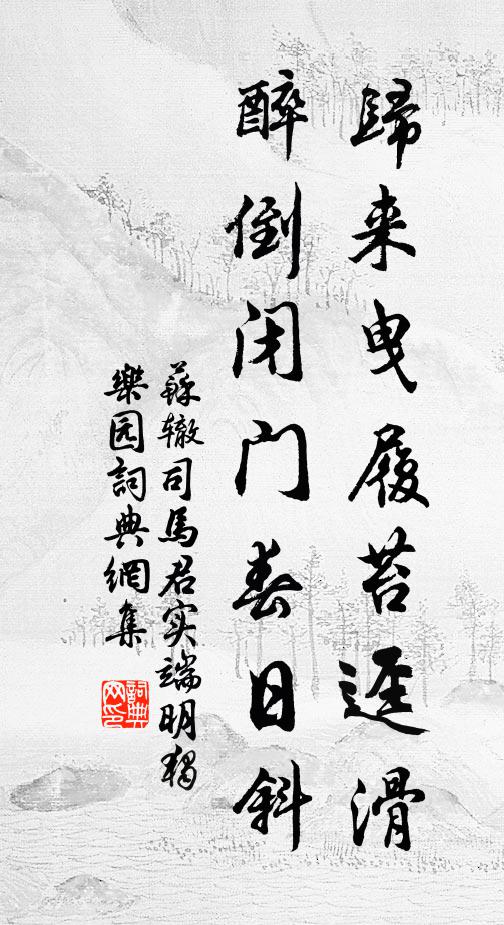 歸来曳履苔迳滑
醉倒闭门春日斜
蘇辙司馬君实端明独
樂园詞典網集
詞典网印